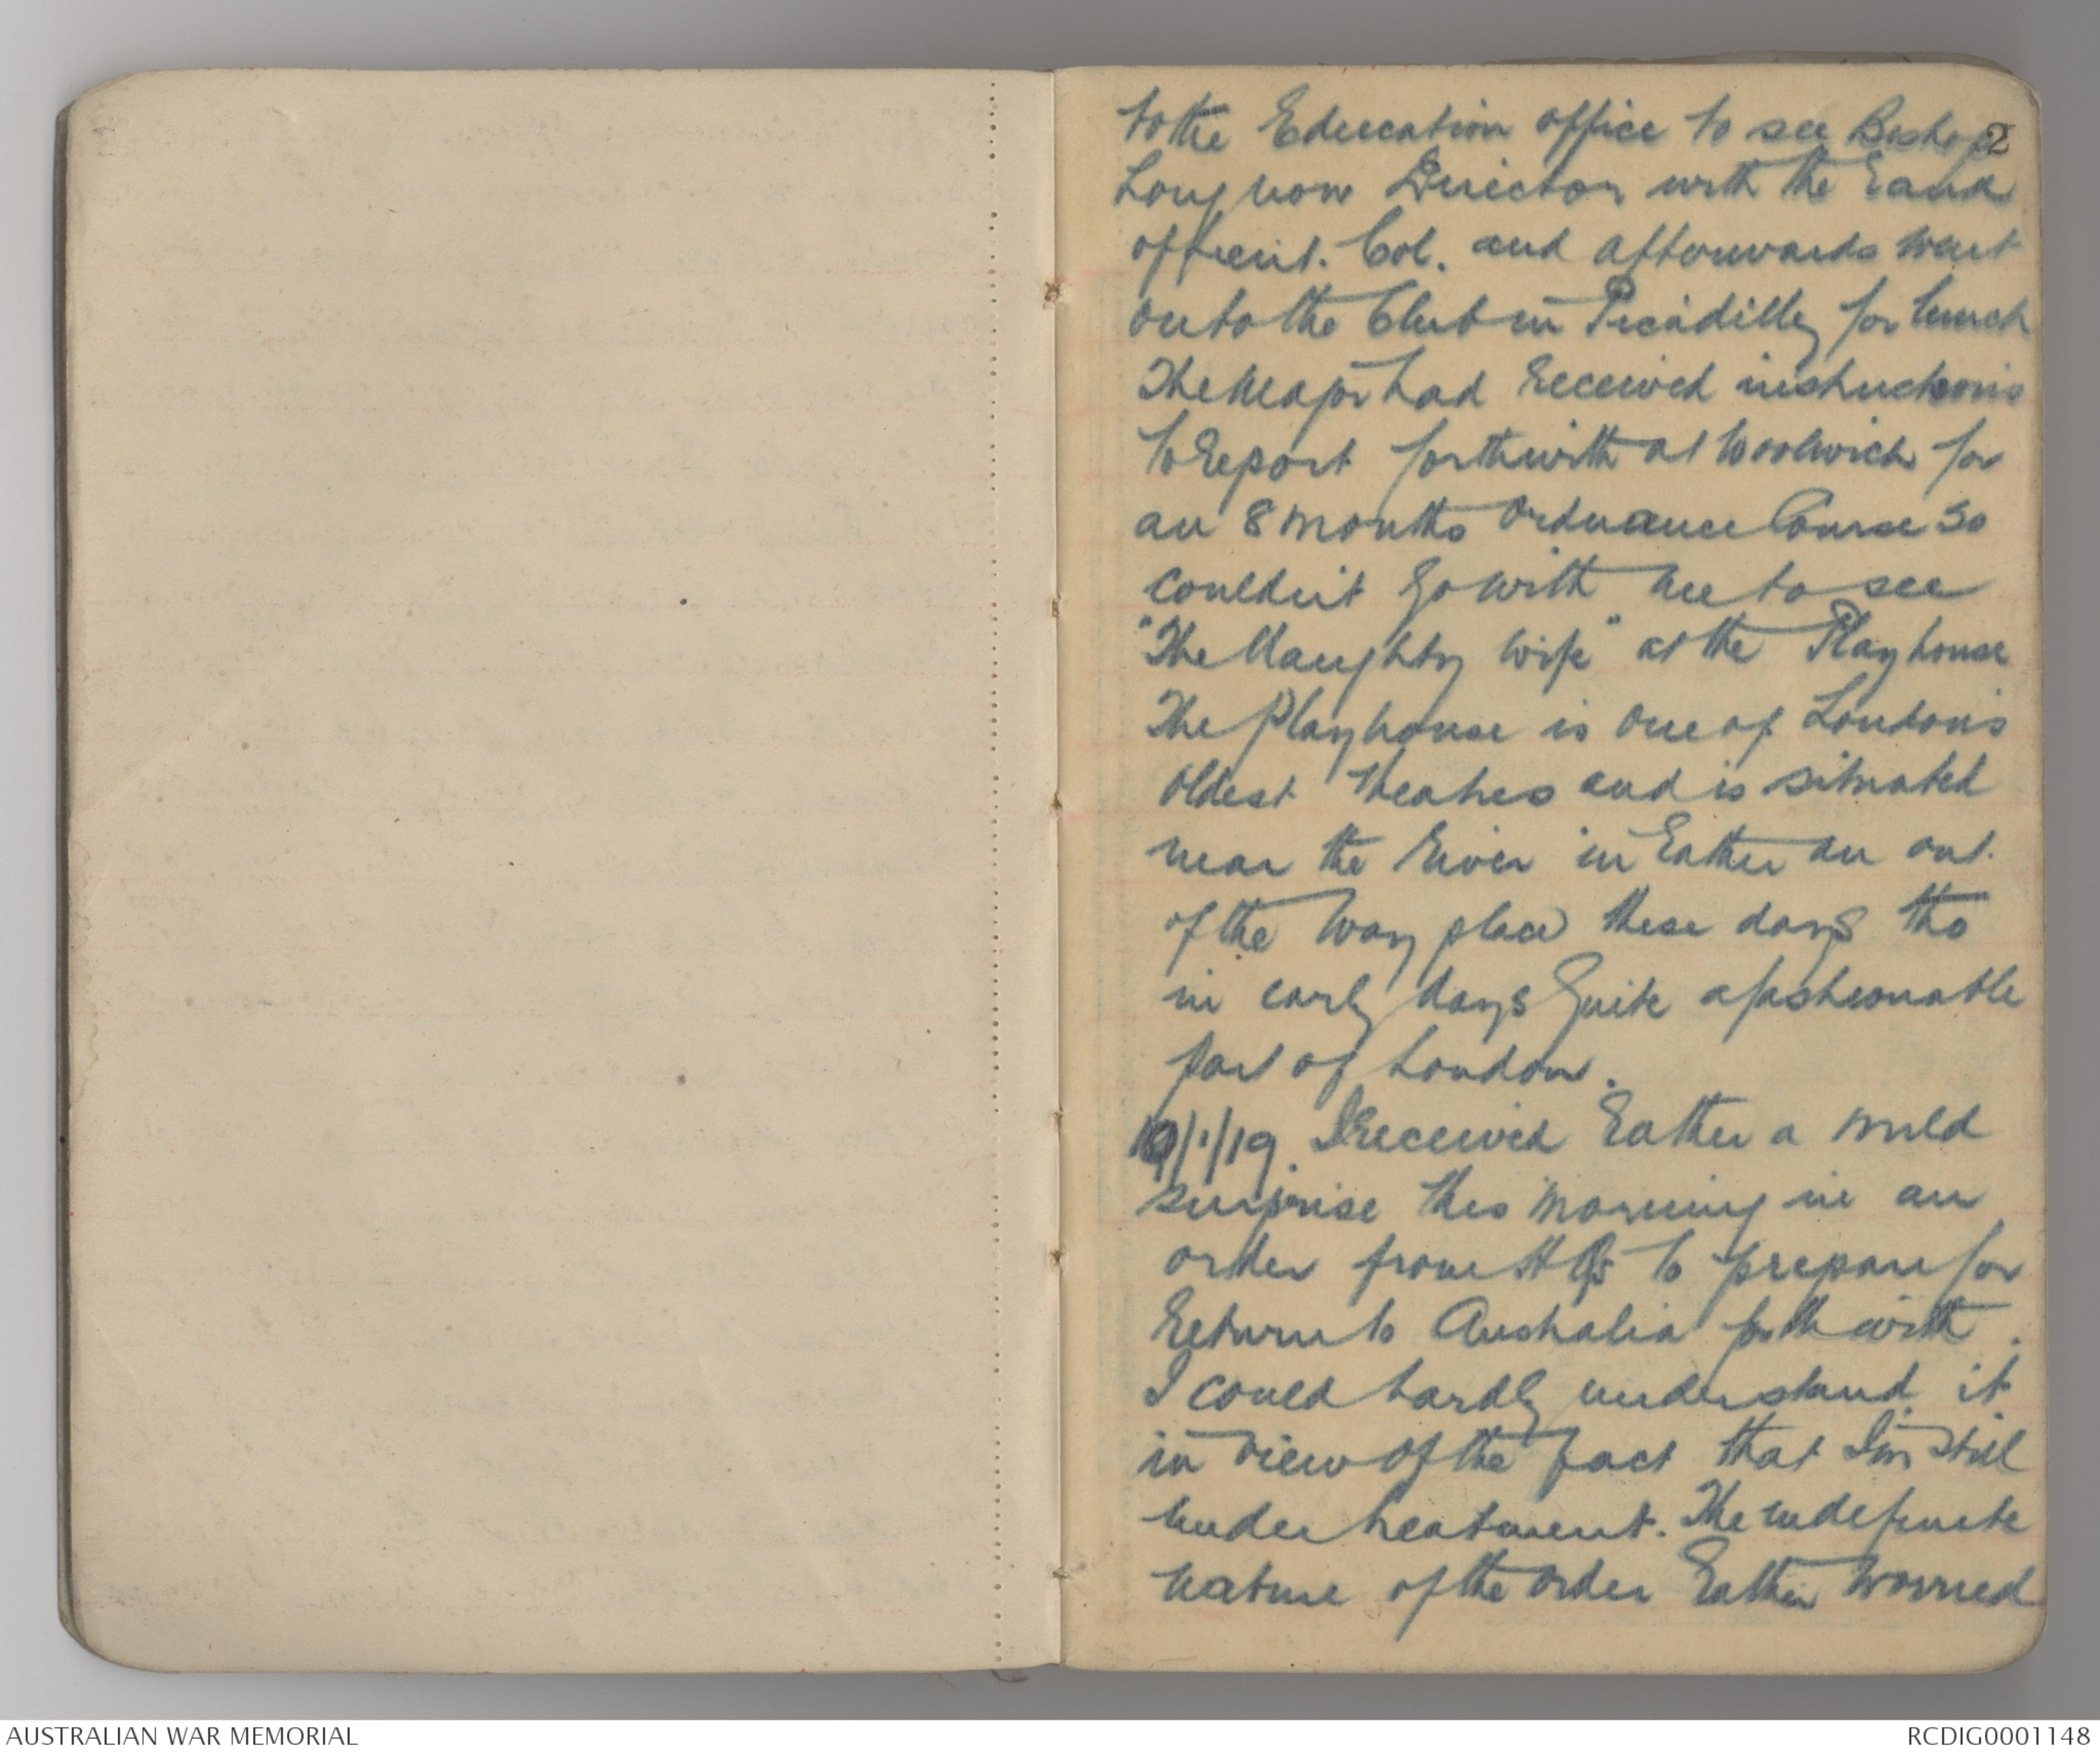 to the Education office to see Bishop
2
Long now Director with the rank
of Lieut. Col. and afterwards went
on to the Club in Picadilly for lunch
The Major had received instructions
to report forthwith at Woolwich for
an 8 months Ordnance Course so
couldn't go with me to see
"The Naughty Wife" at the Playhouse
The Playhouse is one of London's
oldest theatres and is situated
near the river in rather an out
of the way place these days tho
in early days quite a fashionable
part of London.
19/1/19. I received rather a mild
surprise this morning in an
order from HQs to prepare for
return to Australia forthwith.
I could hardly understand it
in view of the fact that I'm still
under treatment. The indefinite
nature of the order rather worried
AUSTRALIAN WAR MEMORIAL
RCDIG0001148